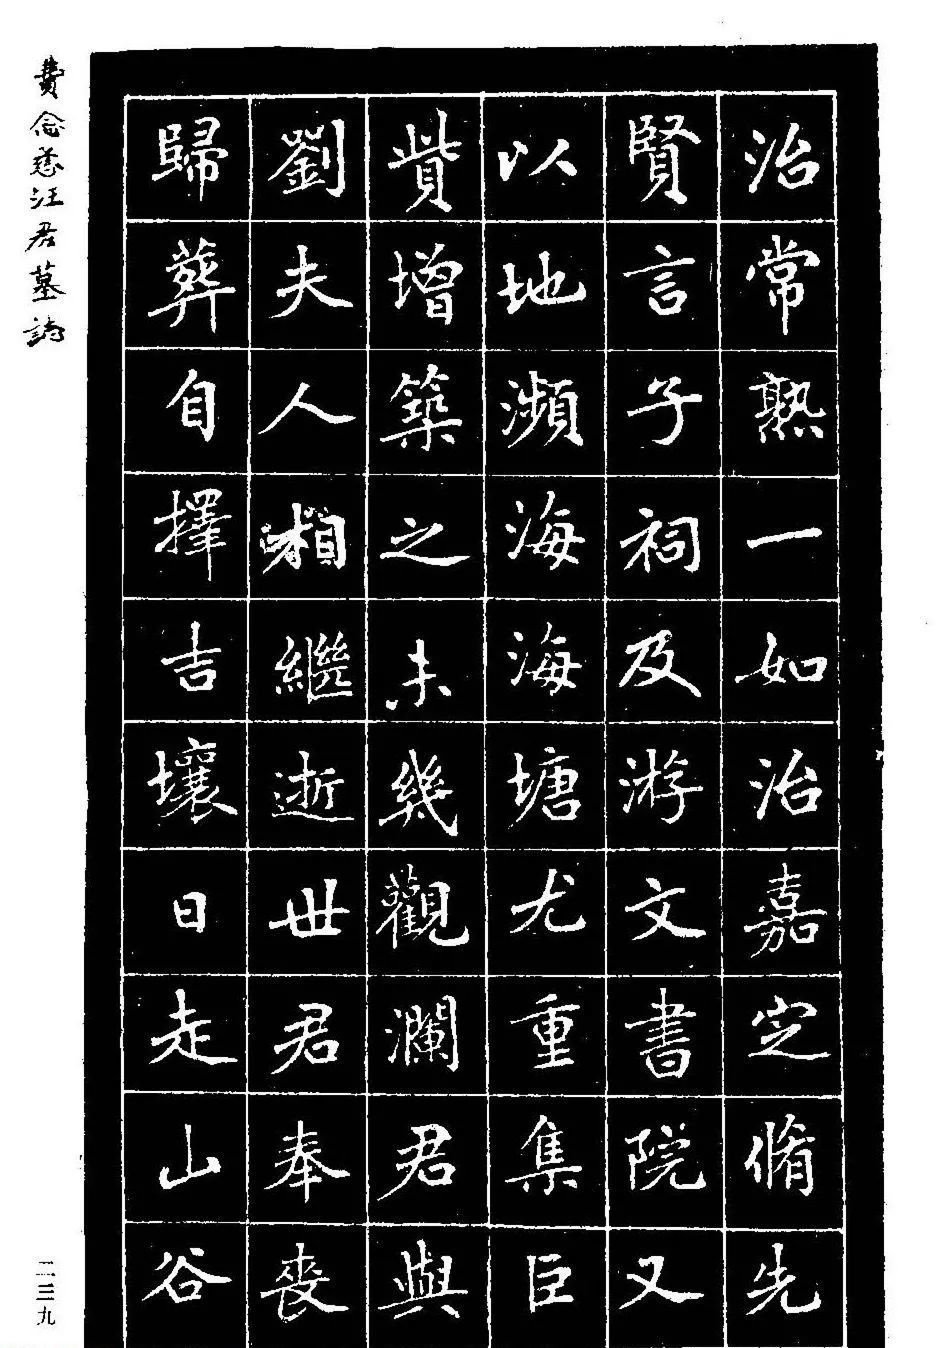 治常熟一如治嘉定脩先
賢言子祠及游文書院又
以地瀕海海塘尤重集臣
貲增築之未幾觀瀾君與
劉夫人相繼逝世君奉喪
歸葬自擇吉壤日走山谷
費念慈汪君墓誌
二三九